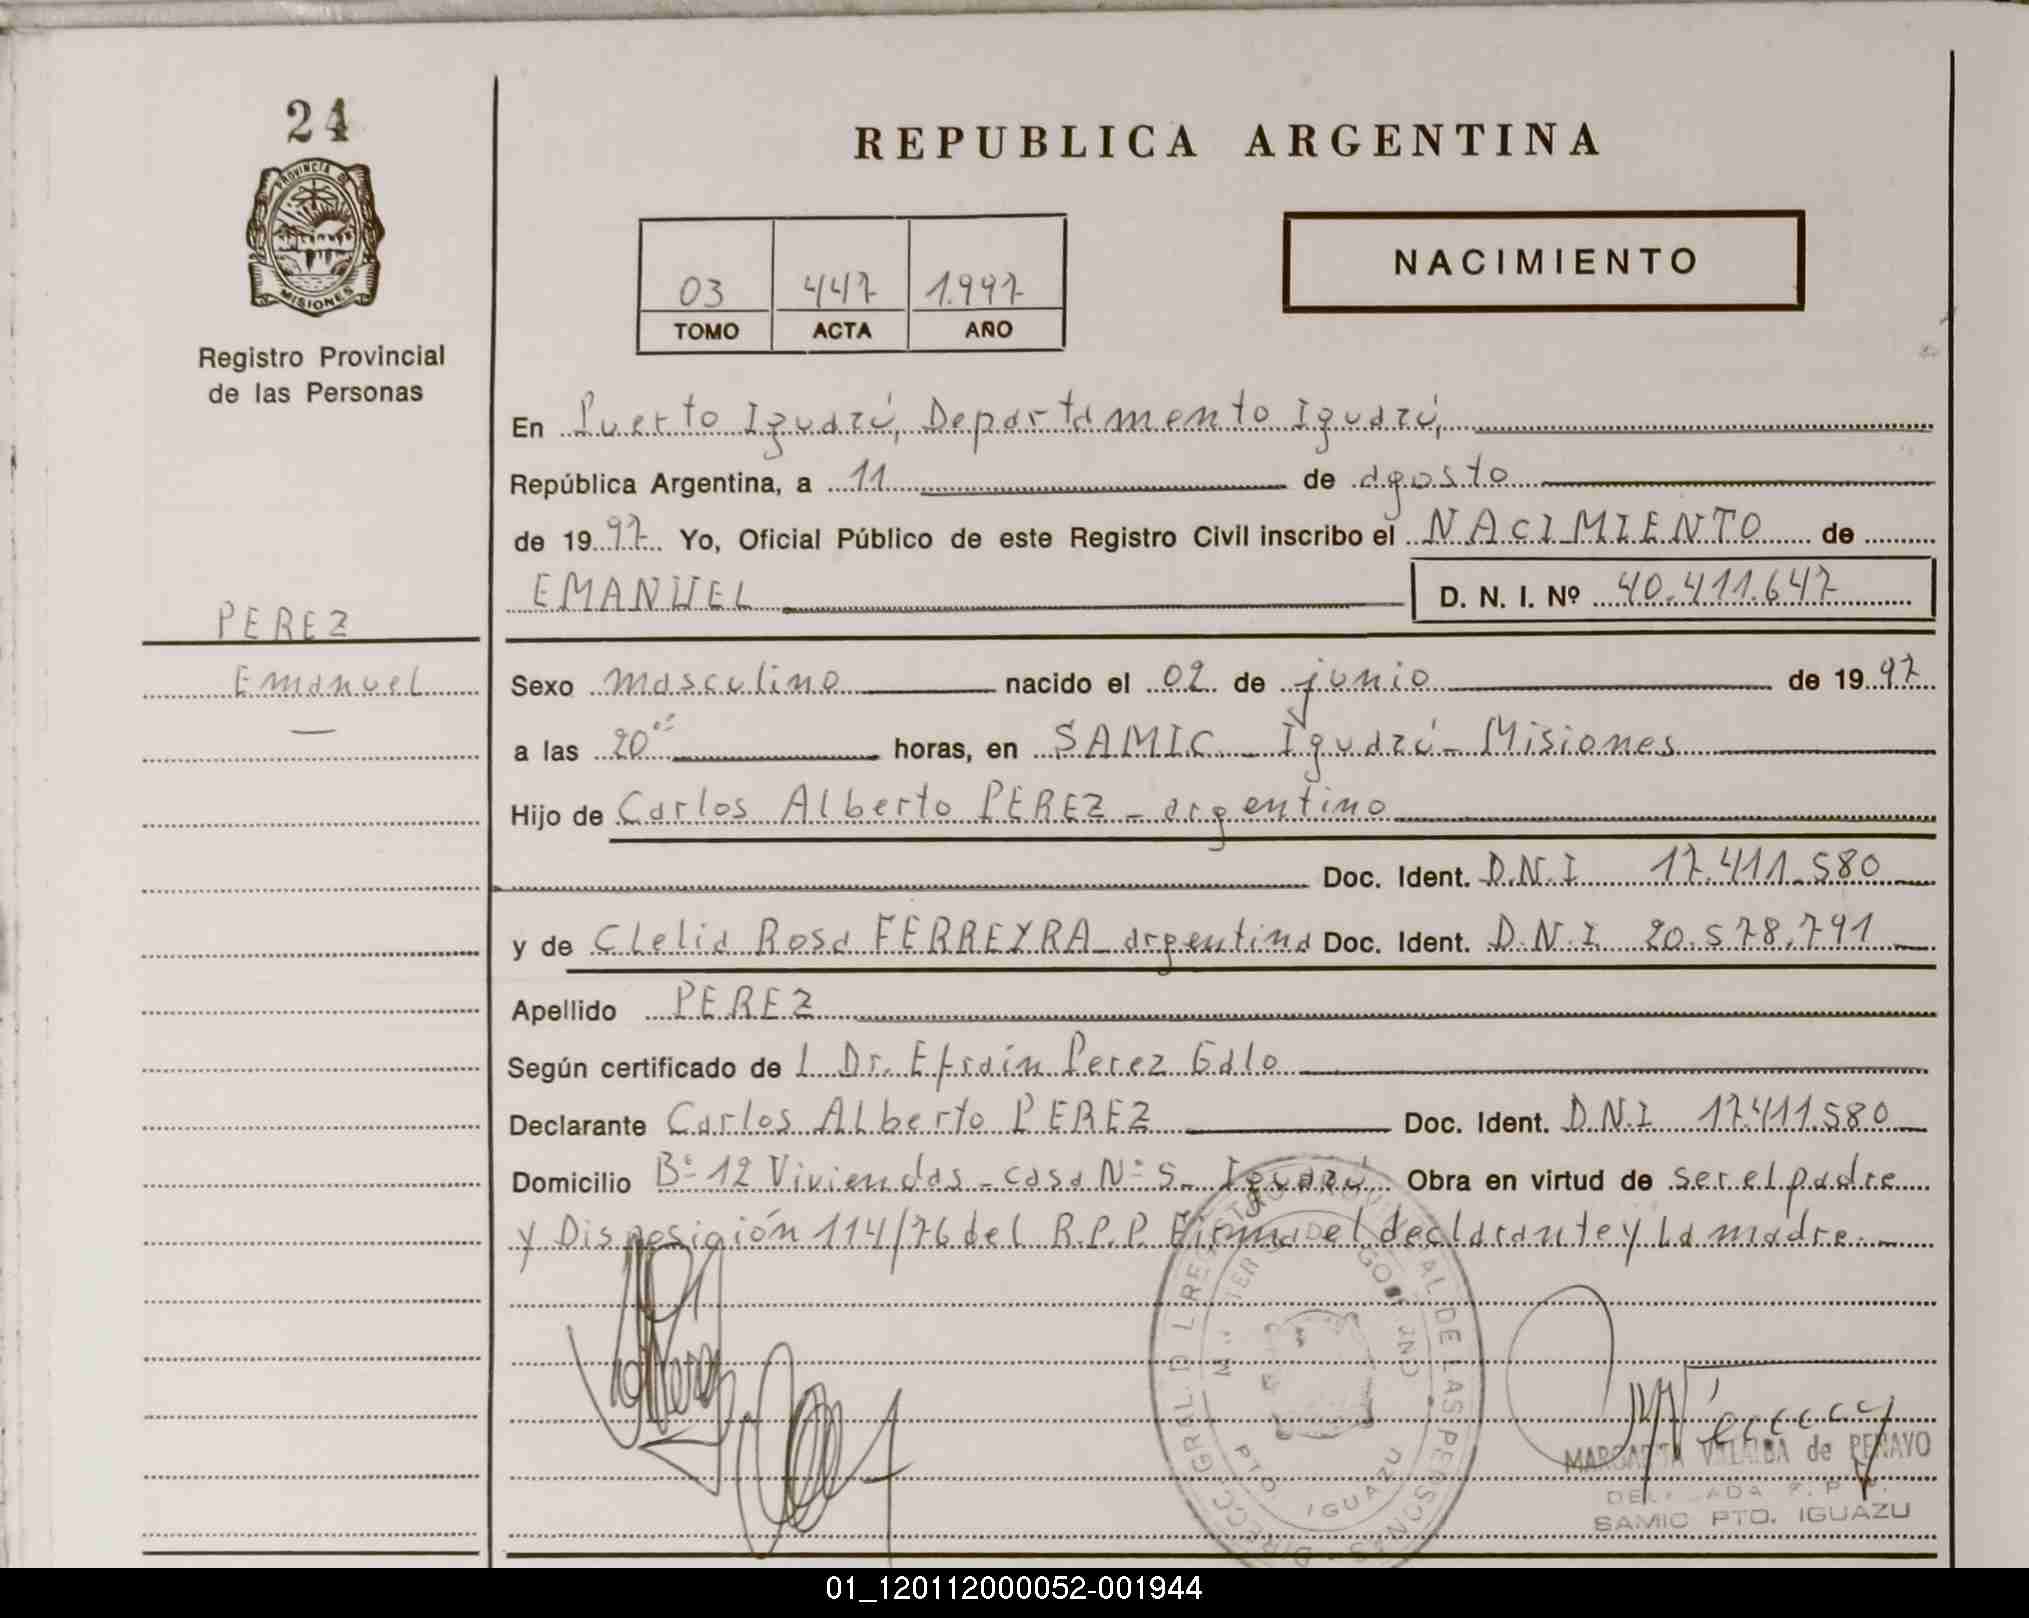 24
PROVINCIA DE
MISIONES
Registro Provincial
de las Personas
PEREZ
Emanuel
REPUBLICA ARGENTINA
03 447 1.997
TOMO ACTA AÑO
NACIMIENTO
En Puerto Iguazú, Departamento Iguazú,
República Argentina, a 11 de agosto
de 1997 Yo, Oficial Público de este Registro Civil inscribo el NACIMIENTO de
EMANUEL D. N. I. Nº 40.411.647
Sexo masculino nacido el 02 de junio de 1997
a las 20 horas, en SAMIC - Iguazú - Misiones
Hijo de Carlos Alberto PEREZ - argentino
Doc. Ident. D.N.I 17.411.580
y de Clelia Rosa FERREYRA - argentina Doc. Ident. D.N.I 20.578.791
Apellido PEREZ
Según certificado de l Dr. Efraín Perez Galo
Declarante Carlos Alberto PEREZ Doc. Ident. D.N.I 17.411.580
Domicilio Bº 12 Viviendas - casa Nº 5 - Iguazú Obra en virtud de ser el padre
y Disposición 114/76 del R.P.P. Firma el declarante y la madre.-
DIRECC. GRAL. D L REGISTRO PROVINCIAL DE LAS PERSONAS
PTO. IGUAZU
MARGARITA VILLALBA de PENAYO
SAMIC PTO. IGUAZU
01_120112000052-001944